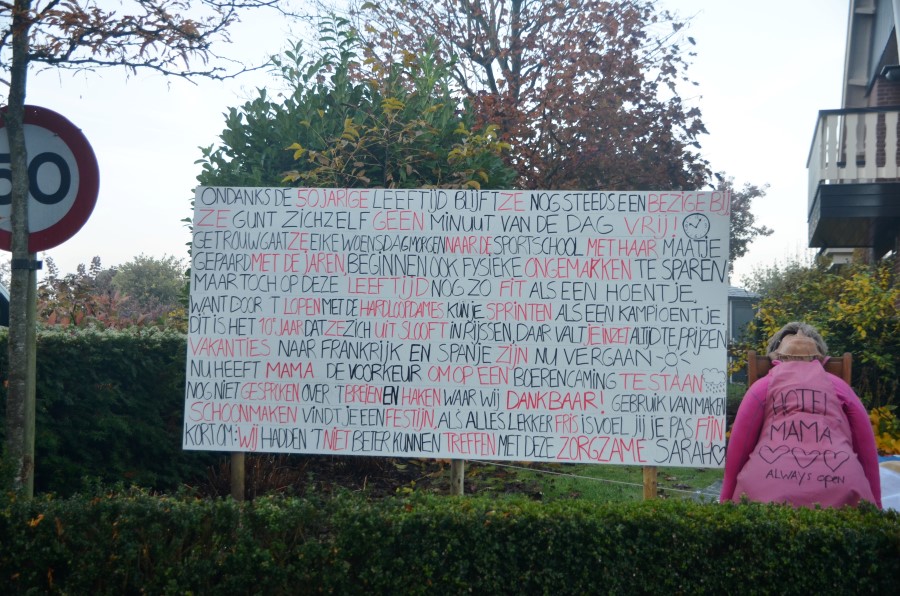 50
ONDANKS DE 50 JARIGE LEEFTIJD BLIJFT ZE NOG STEEDS EEN BEZIGE BIJ
ZE GUNT ZICHZELF GEEN MINUUT VAN DE DAG VRIJ!
GETROUW GAAT ZE ELKE WOENSDAGMORGEN NAAR DE SPORTSCHOOL MET HAAR MAATJE
GEPAARD MET DE JAREN, BEGINNEN OOK FYSIEKE ONGEMAKKEN TE SPAREN
MAAR TOCH OP DEZE LEEFTIJD NOG ZO FIT ALS EEN HOENTJE,
WANT DOOR 'T LOPEN MET DE HARDLOOPDAMES KUN JE SPRINTEN ALS EEN KAMPIOENTJE
DIT IS HET 10e JAAR DAT ZE ZICH UIT SLOOFT IN RIJSSEN, DAAR VALT JE INZET ALTIJD TE PRIJZEN
VAKANTIES NAAR FRANKRIJK EN SPANJE ZIJN NU VERGAAN
NU HEEFT MAMA DE VOORKEUR OM OP EEN BOERENCAMPING TE STAAN
NOG NIET GESPROKEN OVER 'T BREIEN EN HAKEN WAAR WIJ DANKBAAR! GEBRUIK VAN MAKEN
SCHOONMAKEN VINDT JE EEN FESTIJN, ALS ALLES LEKKER FRIS IS VOEL JIJ JE PAS FIJN
KORTOM: WIJ HADDEN 'T NIET BETER KUNNEN TREFFEN MET DEZE ZORGZAME SARAH
HOTEL
MAMA
ALWAYS open